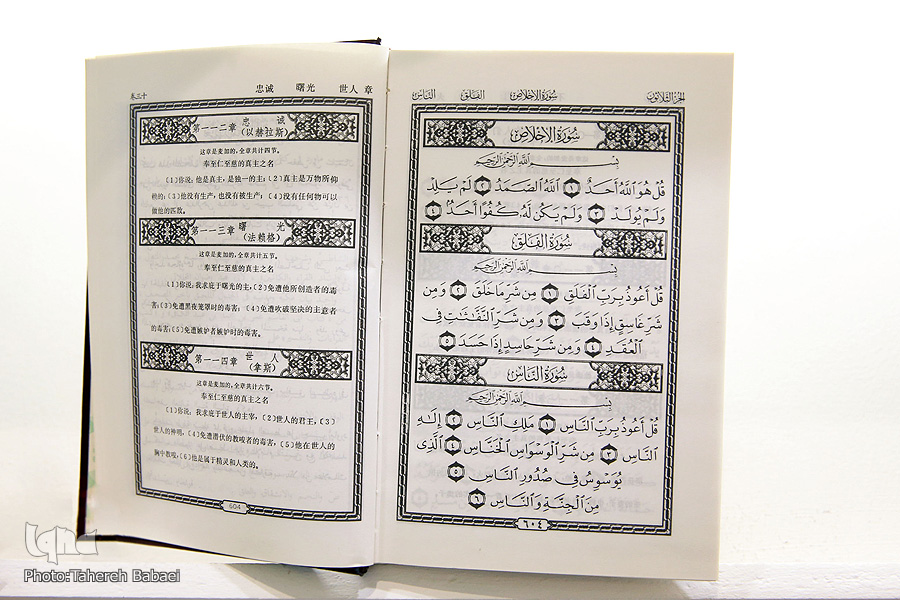 卷三十
忠诚 曙光 世人 章
第一一二章 忠诚
(以赫拉斯)
这章是麦加的,全章共计四节。
奉至仁至慈的真主之名
(1)你说:他是真主,是独一的主;(2)真主是万物所仰
赖的;(3)他没有生产,也没有被生产;(4)没有任何物可以
做他的匹敌。
第一一三章 曙光
(法赖格)
这章是麦加的,全章共计五节。
奉至仁至慈的真主之名
(1)你说:我求庇于曙光的主,(2)免遭他所创造者的毒
害;(3)免遭黑夜笼罩时的毒害;(4)免遭吹破坚决的主意者
的毒害;(5)免遭嫉妒者嫉妒时的毒害。
第一一四章 世人
(拿斯)
这章是麦加的,全章共计六节。
奉至仁至慈的真主之名
(1)你说:我求庇于世人的主宰,(2)世人的君王,(3)
世人的神明,(4)免遭潜伏的教唆者的毒害,(5)他在世人的
胸中教唆,(6)他是属于精灵和人类的。
604
الجزء الثلاثون سورة الإخلاص الفلق الناس
سُورَةُ الإِخْلَاصِ
بِسْمِ اللَّهِ الرَّحْمَٰنِ الرَّحِيمِ
قُلْ هُوَ اللَّهُ أَحَدٌ ١ اللَّهُ الصَّمَدُ ٢ لَمْ يَلِدْ
وَلَمْ يُولَدْ ٣ وَلَمْ يَكُن لَّهُ كُفُوًا أَحَدٌ ٤
سُورَةُ الفَلَقِ
بِسْمِ اللَّهِ الرَّحْمَٰنِ الرَّحِيمِ
قُلْ أَعُوذُ بِرَبِّ الْفَلَقِ ١ مِن شَرِّ مَا خَلَقَ ٢ وَمِن
شَرِّ غَاسِقٍ إِذَا وَقَبَ ٣ وَمِن شَرِّ النَّفَّاثَاتِ فِي
الْعُقَدِ ٤ وَمِن شَرِّ حَاسِدٍ إِذَا حَسَدَ ٥
سُورَةُ النَّاسِ
بِسْمِ اللَّهِ الرَّحْمَٰنِ الرَّحِيمِ
قُلْ أَعُوذُ بِرَبِّ النَّاسِ ١ مَلِكِ النَّاسِ ٢ إِلَٰهِ
النَّاسِ ٣ مِن شَرِّ الْوَسْوَاسِ الْخَنَّاسِ ٤ الَّذِي
يُوَسْوِسُ فِي صُدُورِ النَّاسِ ٥
مِنَ الْجِنَّةِ وَالنَّاسِ ٦
٦٠٤
iqna
Photo:Tahereh Babaei